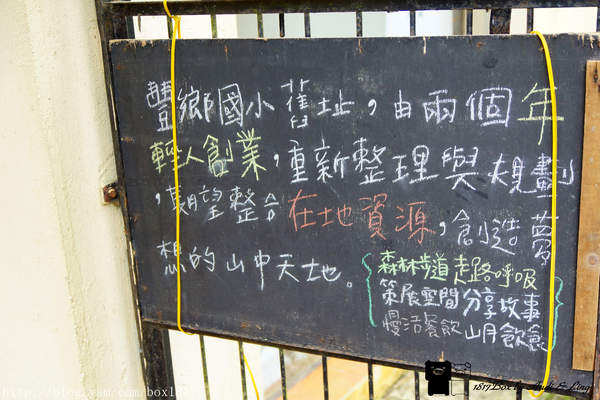 豐鄉國小舊址，由兩個年
輕人創業，重新整理與規劃
，期望整合在地資源，創造夢
想的山中天地。
森林步道走路呼吸
策展空間分享故事
慢活餐飲山月飲食
1817Box by Andy & Ling